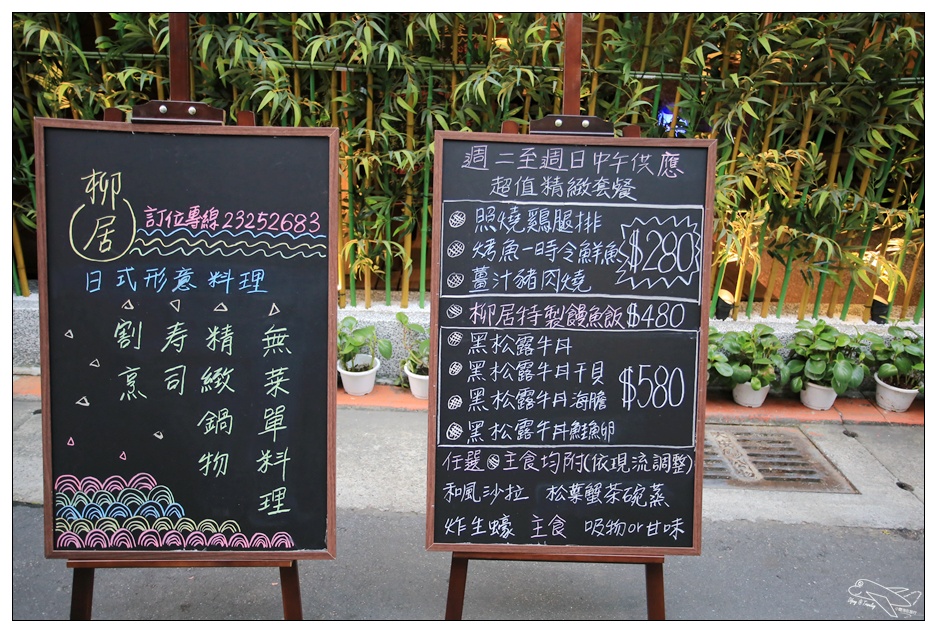 柳居
訂位專線 23252683
日式形意料理
無菜單料理
精緻鍋物
寿司
割烹
週二至週日中午供應
超值精緻套餐
照燒雞腿排
烤魚一時令鮮魚
薑汁豬肉燒
$280
柳居特製饅魚飯 $480
黑松露牛丼
黑松露牛丼干貝
黑松露牛丼海膽
黑松露牛丼鮭魚卵
$580
任選 主食均附(依現流調整)
和風沙拉 松葉蟹茶碗蒸
炸生蠔 主食 吸物or甘味